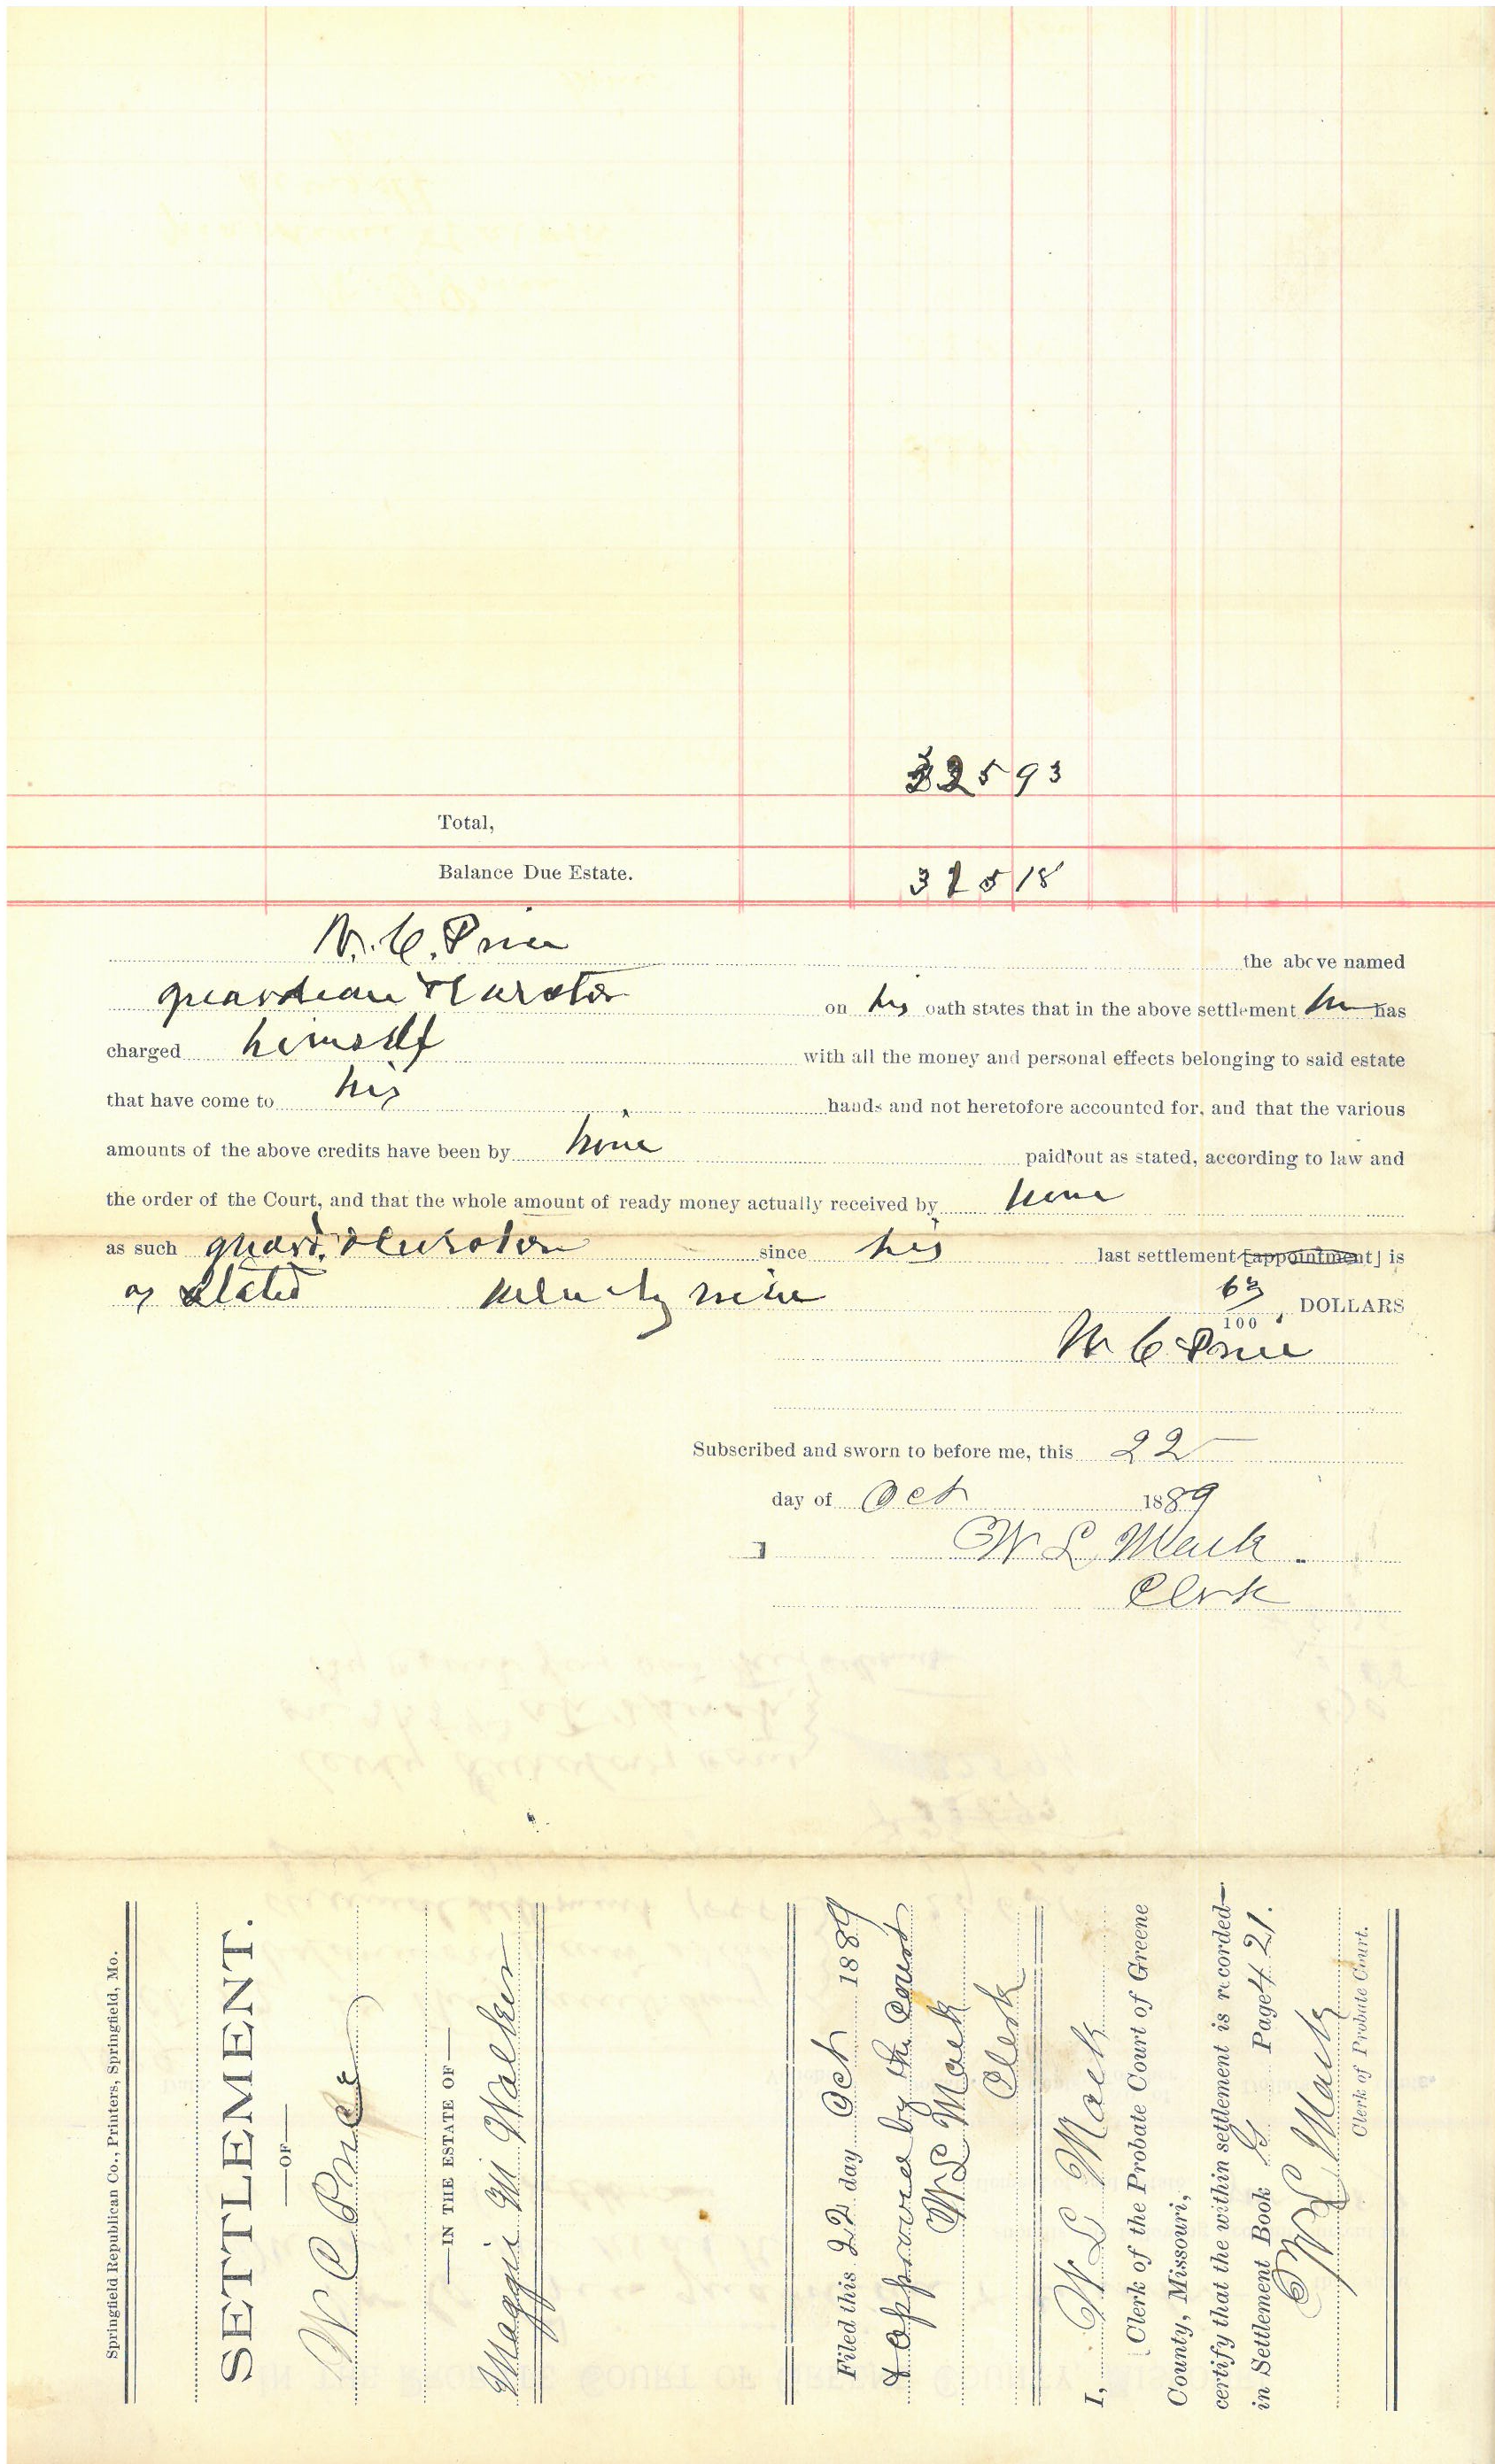 325 93
Total,
Balance Due Estate. 325 18
W. C. Price the above named
guardian & Curator on his oath states that in the above settlement he has
charged himself with all the money and personal effects belonging to said estate
that have come to his hands and not heretofore accounted for, and that the various
amounts of the above credits have been by none paid out as stated, according to law and
the order of the Court, and that the whole amount of ready money actually received by none
as such guard. & Curator since his last settlement [appointment] is
as stated nine 63/100, DOLLARS
W C Price
Subscribed and sworn to before me, this 22
day of Oct 1889
W L Mack.
Clerk
Springfield Republican Co., Printers, Springfield, Mo.
SETTLEMENT.
—OF—
W C Price
—IN THE ESTATE OF—
Maggie M Walker
Filed this 22 day Oct 1889
& approved by the Court
W L Mack
Clerk
I, W L Mack
Clerk of the Probate Court of Greene
County, Missouri,
certify that the within settlement is recorded
in Settlement Book G Page 421.
W L Mack
Clerk of Probate Court.